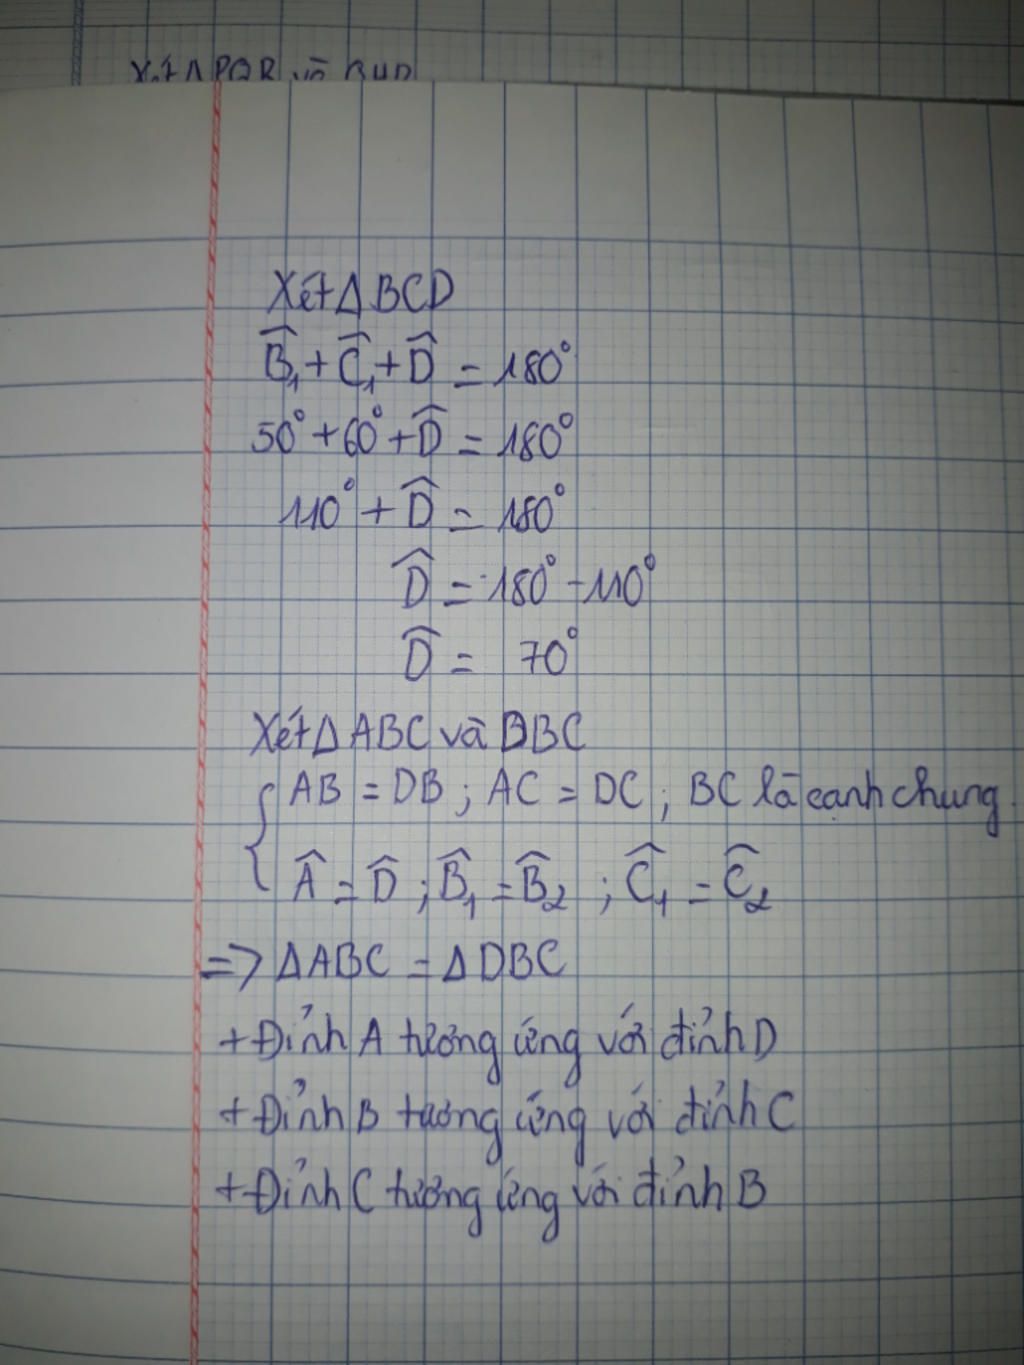 Xét Δ PQR và
Xét Δ BCD
B̂₁ + Ĉ₁ + D̂ = 180°
50° + 60° + D̂ = 180°
110° + D̂ = 180°
D̂ = 180° - 110°
D̂ = 70°
Xét Δ ABC và DBC
{ AB = DB ; AC = DC ; BC là cạnh chung.
Â = D̂ ; B̂₁ = B̂₂ ; Ĉ₁ = Ĉ₂
=> Δ ABC = Δ DBC
+ Đỉnh A tương ứng với đỉnh D
+ Đỉnh B tương ứng với đỉnh C
+ Đỉnh C tương ứng với đỉnh B